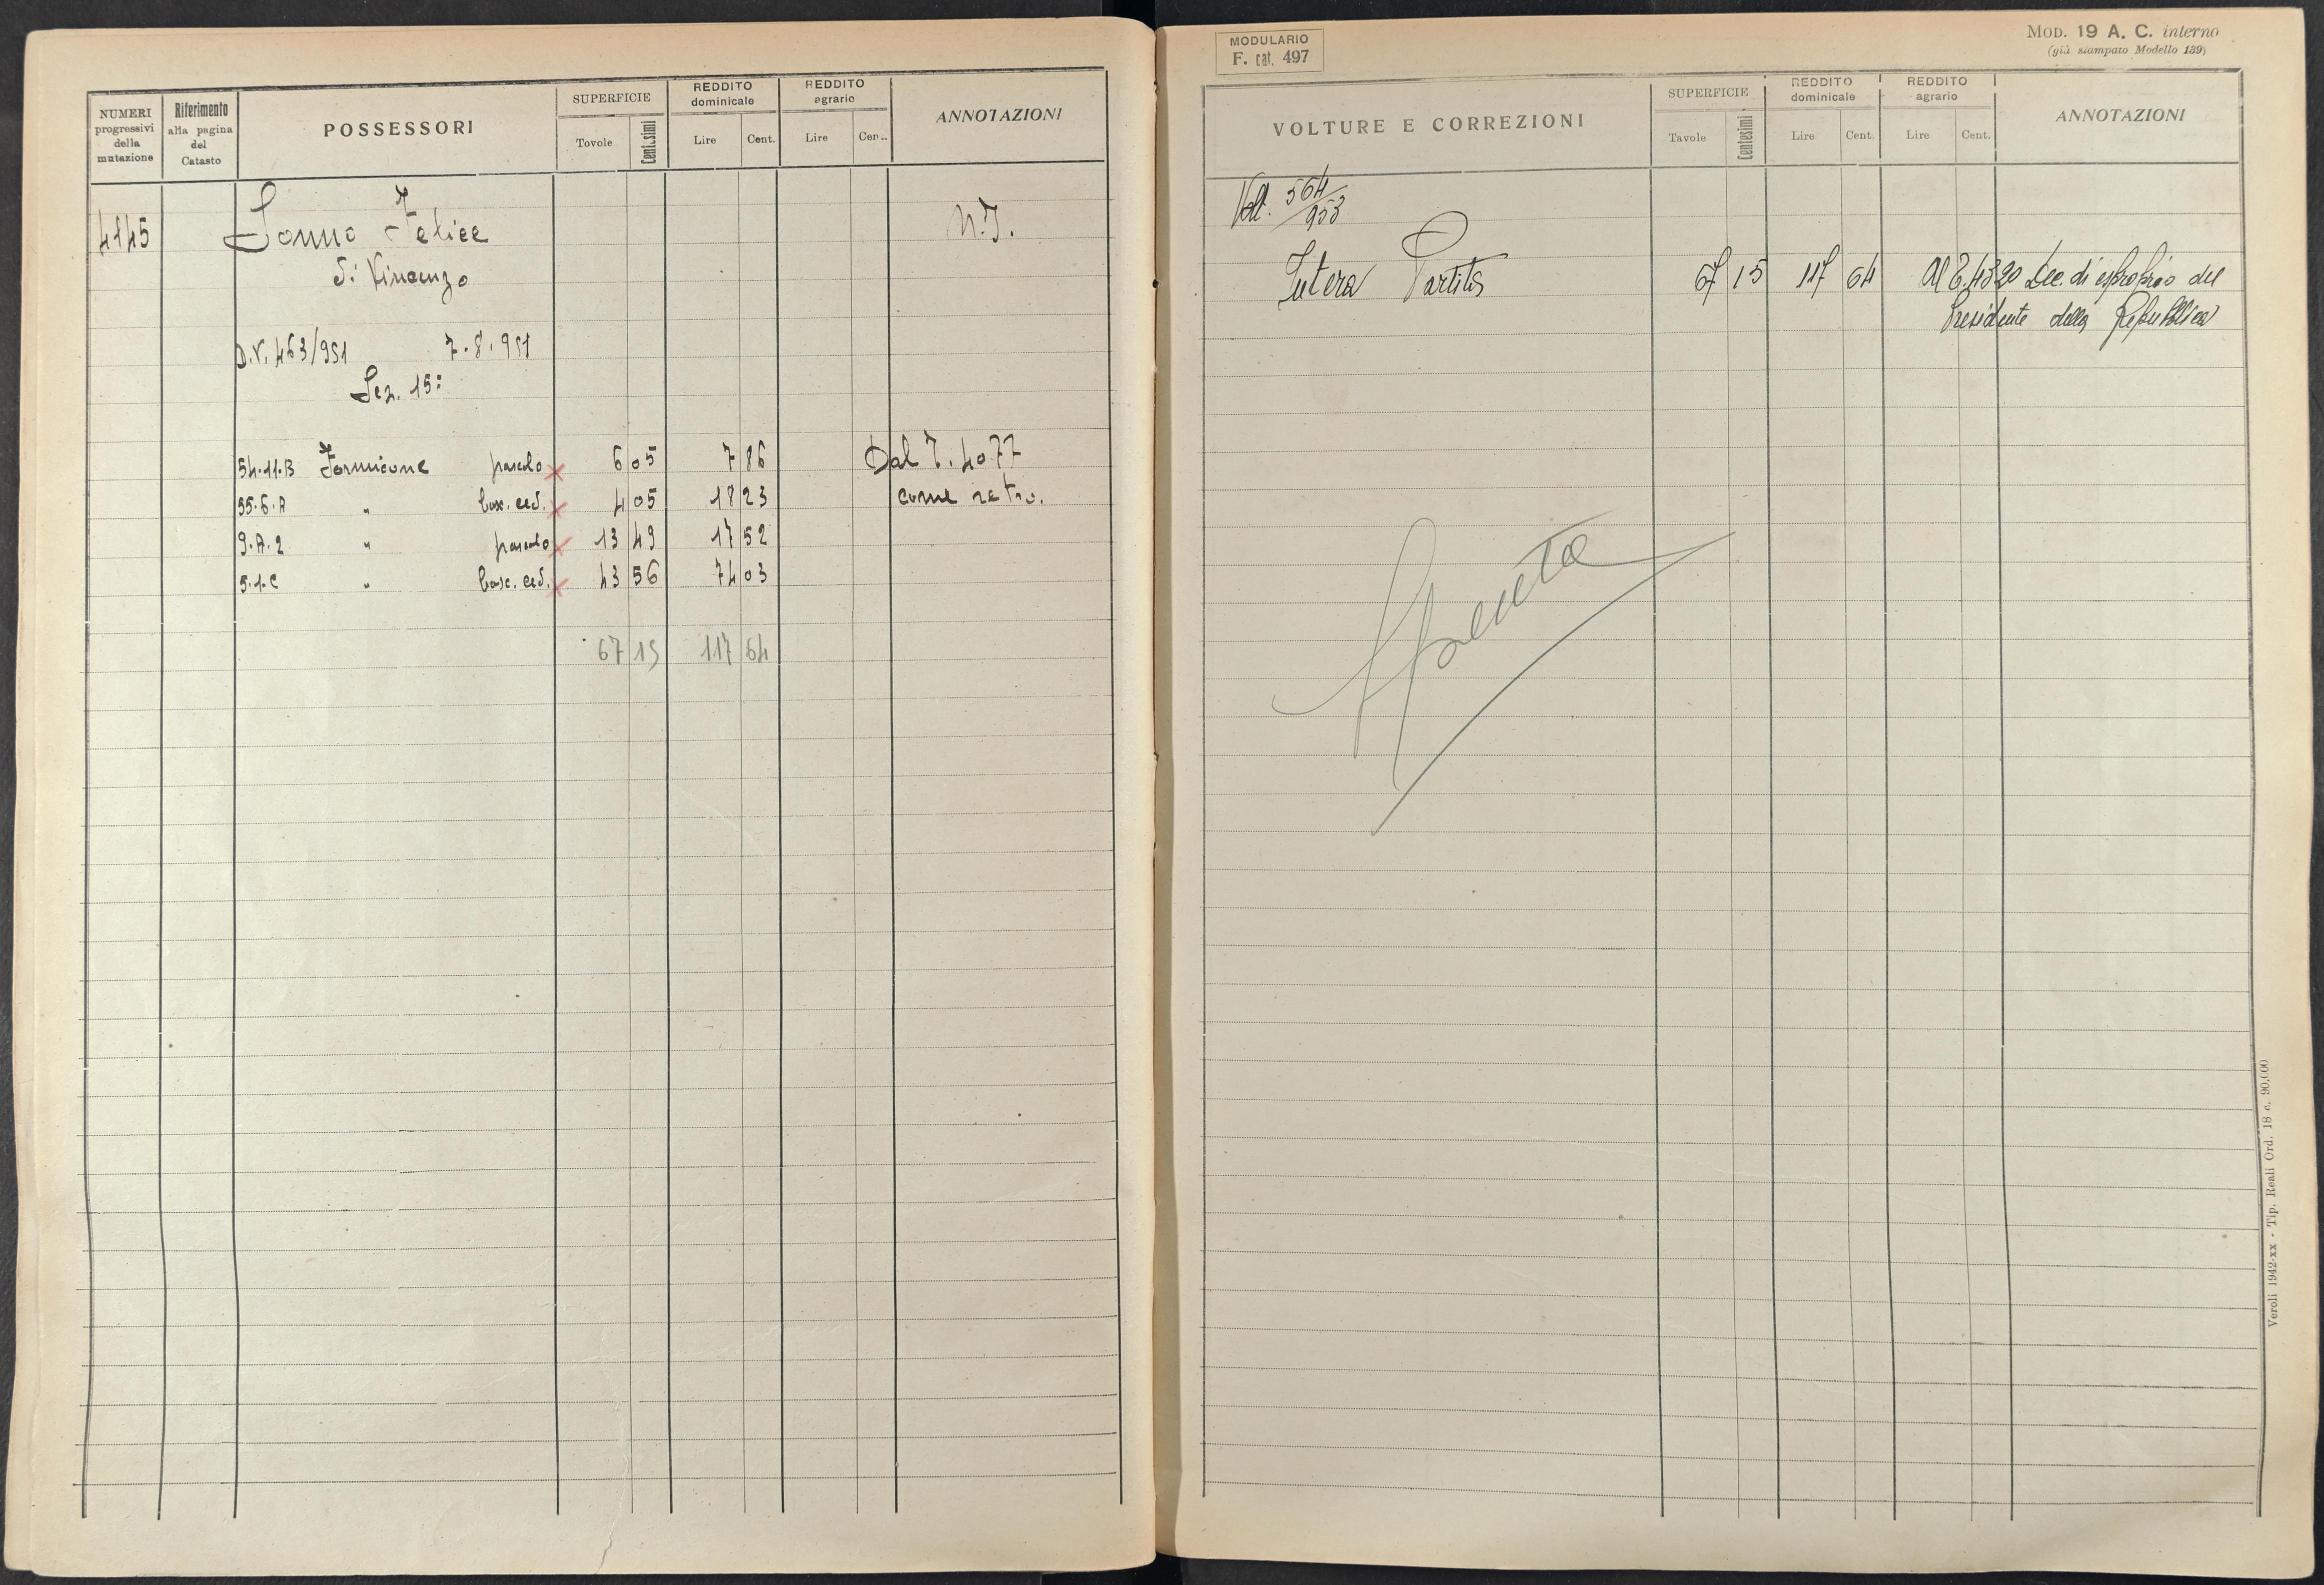 NUMERI progressivi della mutazione | Riferimento alla pagina del Catasto | POSSESSORI | SUPERFICIE Tovole Centesimi | REDDITO dominicale Lire Cent. | REDDITO agrario Lire Cen. | ANNOTAZIONI
4145 Felice N.T.
di Vincenzo
D.V. 463/951 7.8.951
Sez. 15:
54.11.B Formicone pascolo 6 05 7 86 Dal P. 4077
55.6.A " bosc. ced. 4 05 18 23 come retro.
9.A.2 " pascolo 13 49 17 52
5.1.C " bosc. ced. 43 56 74 03
67 15 117 64
MODULARIO
F. cat. 497
MOD. 19 A. C. interno
(già stampato Modello 139)
VOLTURE E CORREZIONI | SUPERFICIE Tavole Centesimi | REDDITO dominicale Lire Cent. | REDDITO agrario Lire Cent. | ANNOTAZIONI
Volt. 564/953
Intera Partita 67 15 117 64 Al P. 4320 Dec. di esproprio del
Presidente della Repubblica
Spenta
Veroli 1942-XX - Tip. Reali Ord. 18 c. 90.000